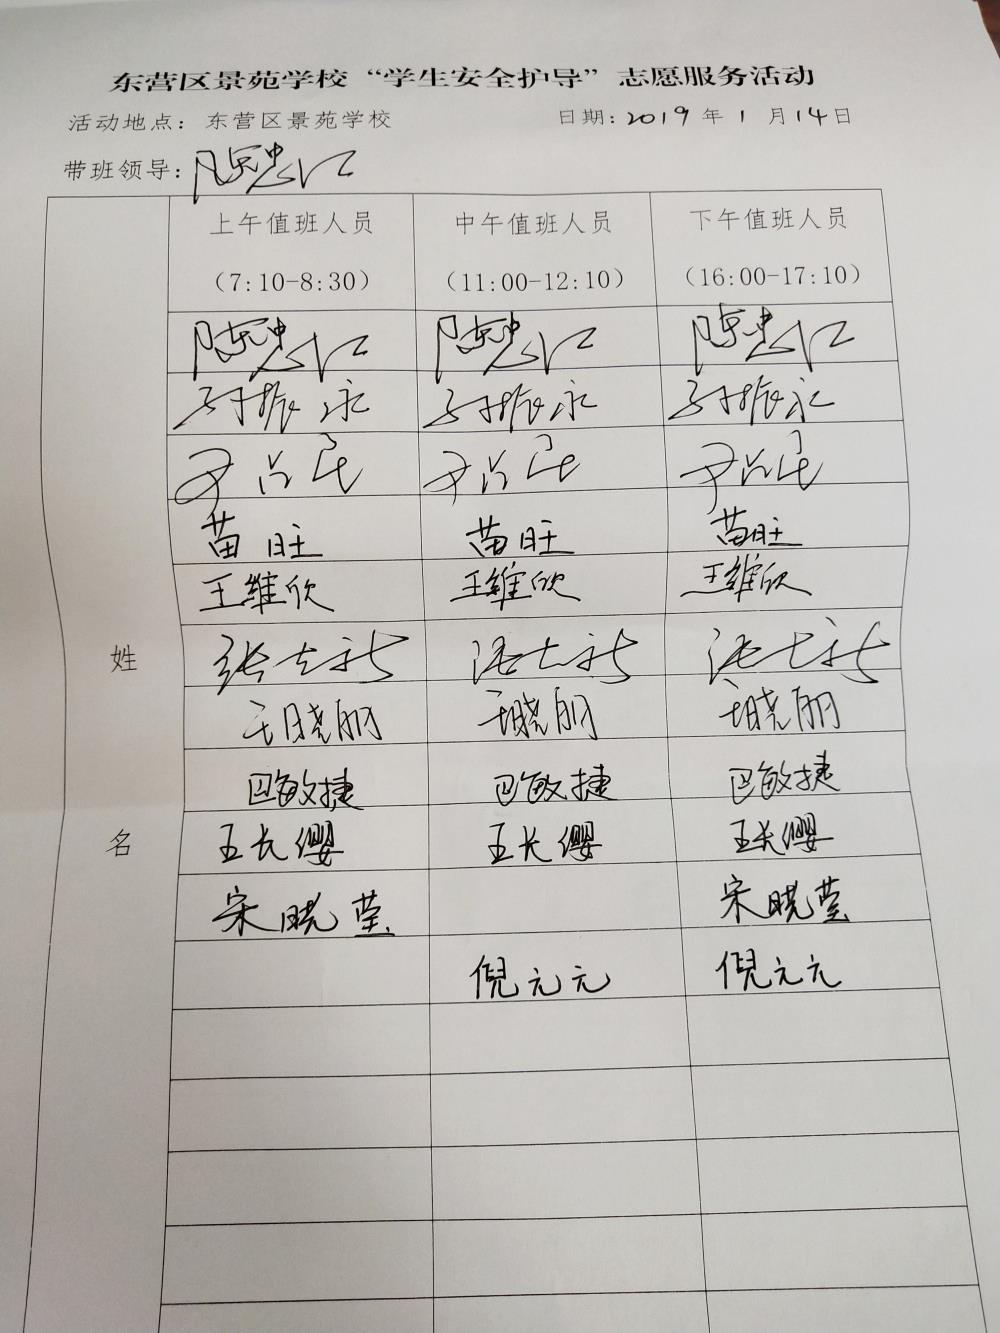 东营区景苑学校“学生安全护导”志愿服务活动
活动地点：东营区景苑学校 日期：2019年1月14日
带班领导：陈忠江
上午值班人员 中午值班人员 下午值班人员
（7:10-8:30） （11:00-12:10） （16:00-17:10）
陈忠江 陈忠江 陈忠江
孙振永 孙振永 孙振永
尹 民 尹 民 尹 民
苗旺 苗旺 苗旺
王维欣 王维欣 王维欣
姓 张 新 张 新 张 新
王晓丽 王晓丽 王晓丽
巴敏捷 巴敏捷 巴敏捷
名 王长缨 王长缨 王长缨
宋晓莹 宋晓莹
倪元元 倪元元